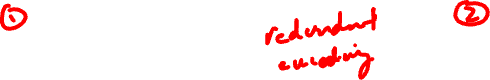 ① redundant ②
encoding